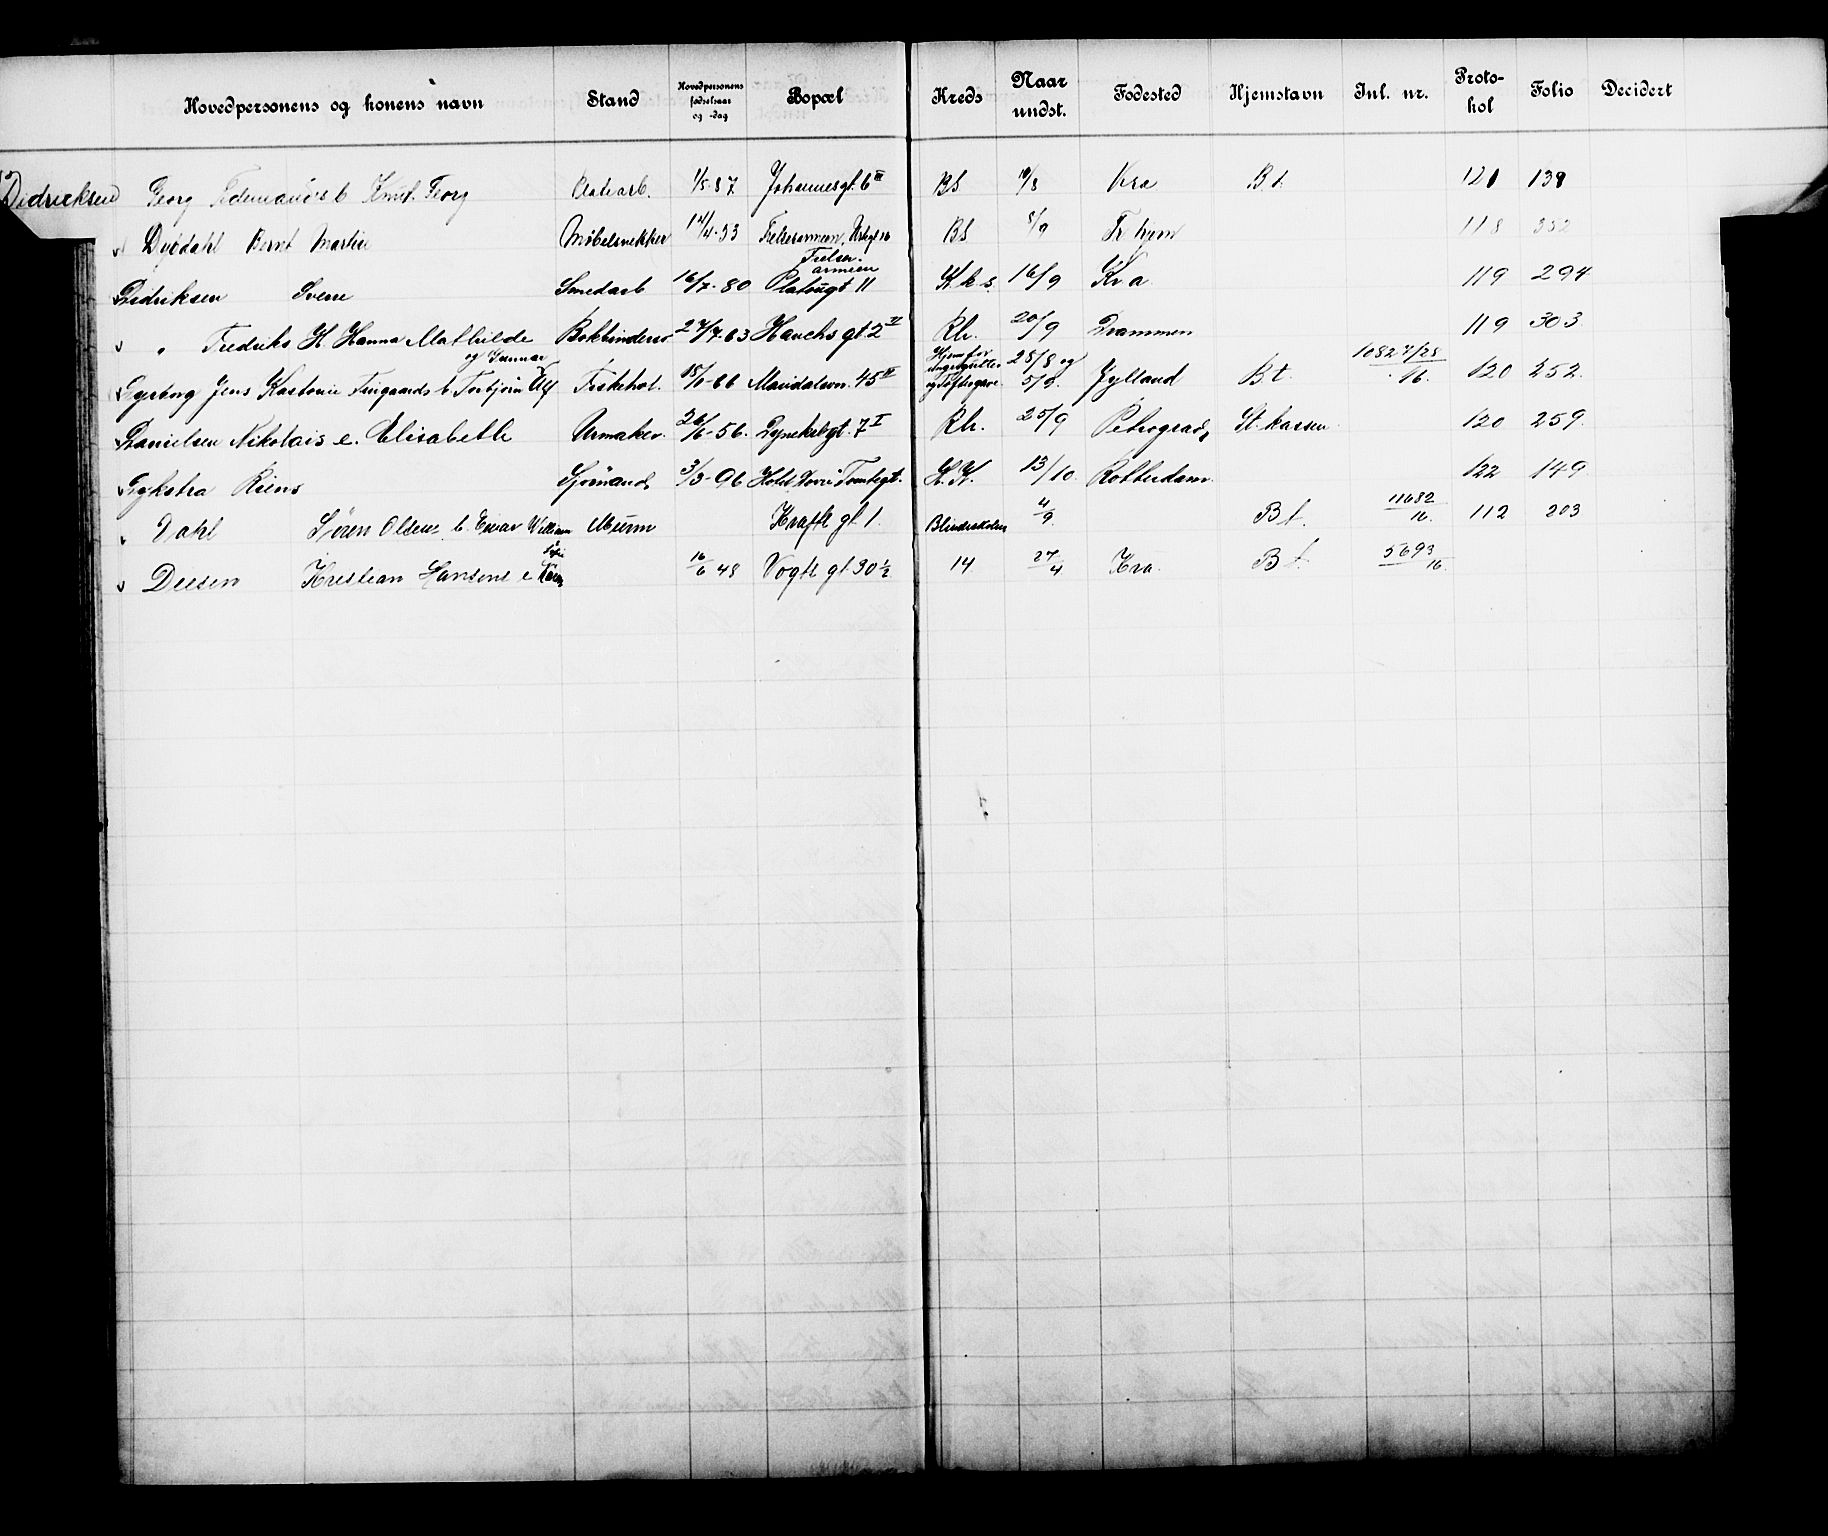 Hovedpersonens og konens navn Stand Hovedpersonens fødselsaar og -dag Bopæl Kreds Naar undst. Fødested Hjemstavn Jnl. nr. Proto-kol Folio Decidert
Didricksen Georg b Knut Georg 1/5-87 Johannesgt. 6 III BS 10/8 Kra B.t. 121 139
Dybdahl Bernt Martin Møbelsnekker 14/4-53 Frelsesarmeen, BS 8/9 Tr.hjem 118 352
Didriksen Sverre Smedarb 16/7-80 Platougt 11 Frelser-armeen K.k.s. 16/9 Kra 119 294
" Fredriks H. Hanna Mathilde Bokbinders 27/7-63 Hauchs gt 2 II Rh. 20/9 Drammen 119 303
Dyrborg Jens b. Torbjørn Alf og Gunnar Fiskehdl. 15/1-66 Maridalsvn. 45 IV Hjem for og Toftesgave 28/8 og 5/8. Jylland B.t. 10827/28 16. 120 252.
Danielsen Nikolais e. Elisabeth Urmaker. 26/6-56. Dynekilgt. 7 I Rh. 25/9 Petrograd, St.kassen 120 259.
Dykstra Riens Sjømand, 3/3-96 Hotel Dovre Tomtegt. H.H. 13/10. Rotterdam. 122 149
Dahl Søren Olsens b. Einar William Murm Krafts gt 1. Blindeskolen 4/9. B t. 11682/16. 112 203
Deesen Kristian Hansens e Karen 16/6 48 Vogts gt 30 ½ 14 27/4 Kra. B t. 5693/16.